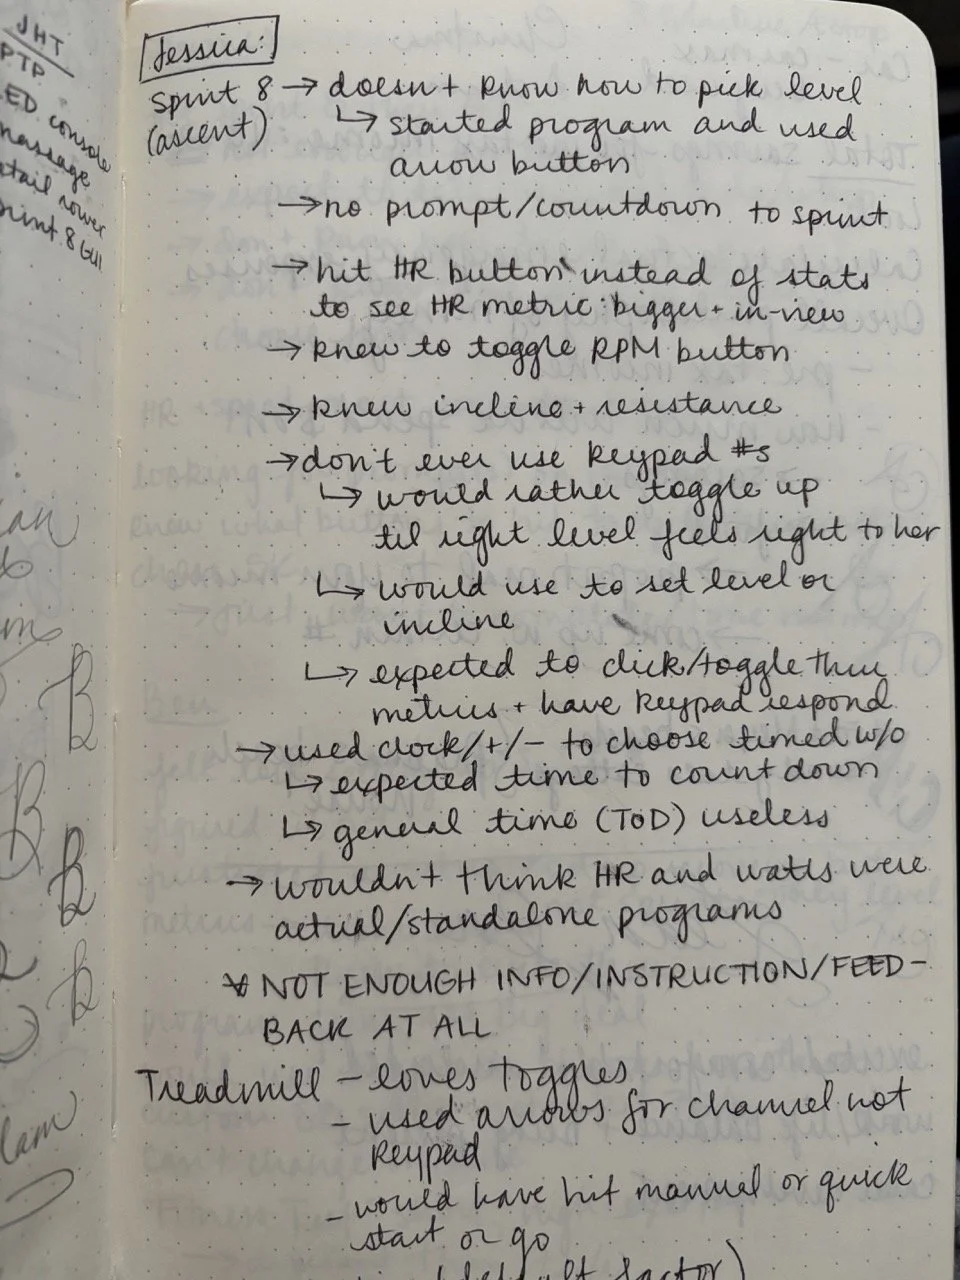 JHT
PTP
LED console
massage
retail rower
sprint 8 GUI
Jessica:
Sprint 8 → doesn't know how to pick level
(ascent) ↳ started program and used
arrow button
→ no prompt/countdown to sprint
→ hit HR button instead of stats
to see HR metric: bigger + in-view
→ knew to toggle RPM button
→ knew incline + resistance
→ don't ever use keypad #s
↳ would rather toggle up
til right level feels right to her
↳ would use to set level or
incline
↳ expected to click/toggle thru
metrics + have keypad respond
→ used clock/+/- to choose timed w/o
↳ expected time to count down
↳ general time (TOD) useless
→ wouldn't think HR and watts were
actual/standalone programs
* NOT ENOUGH INFO/INSTRUCTION/FEED-
BACK AT ALL
Treadmill - loves toggles
- used arrows for channel not
keypad
- would have hit manual or quick
start or go
factor)